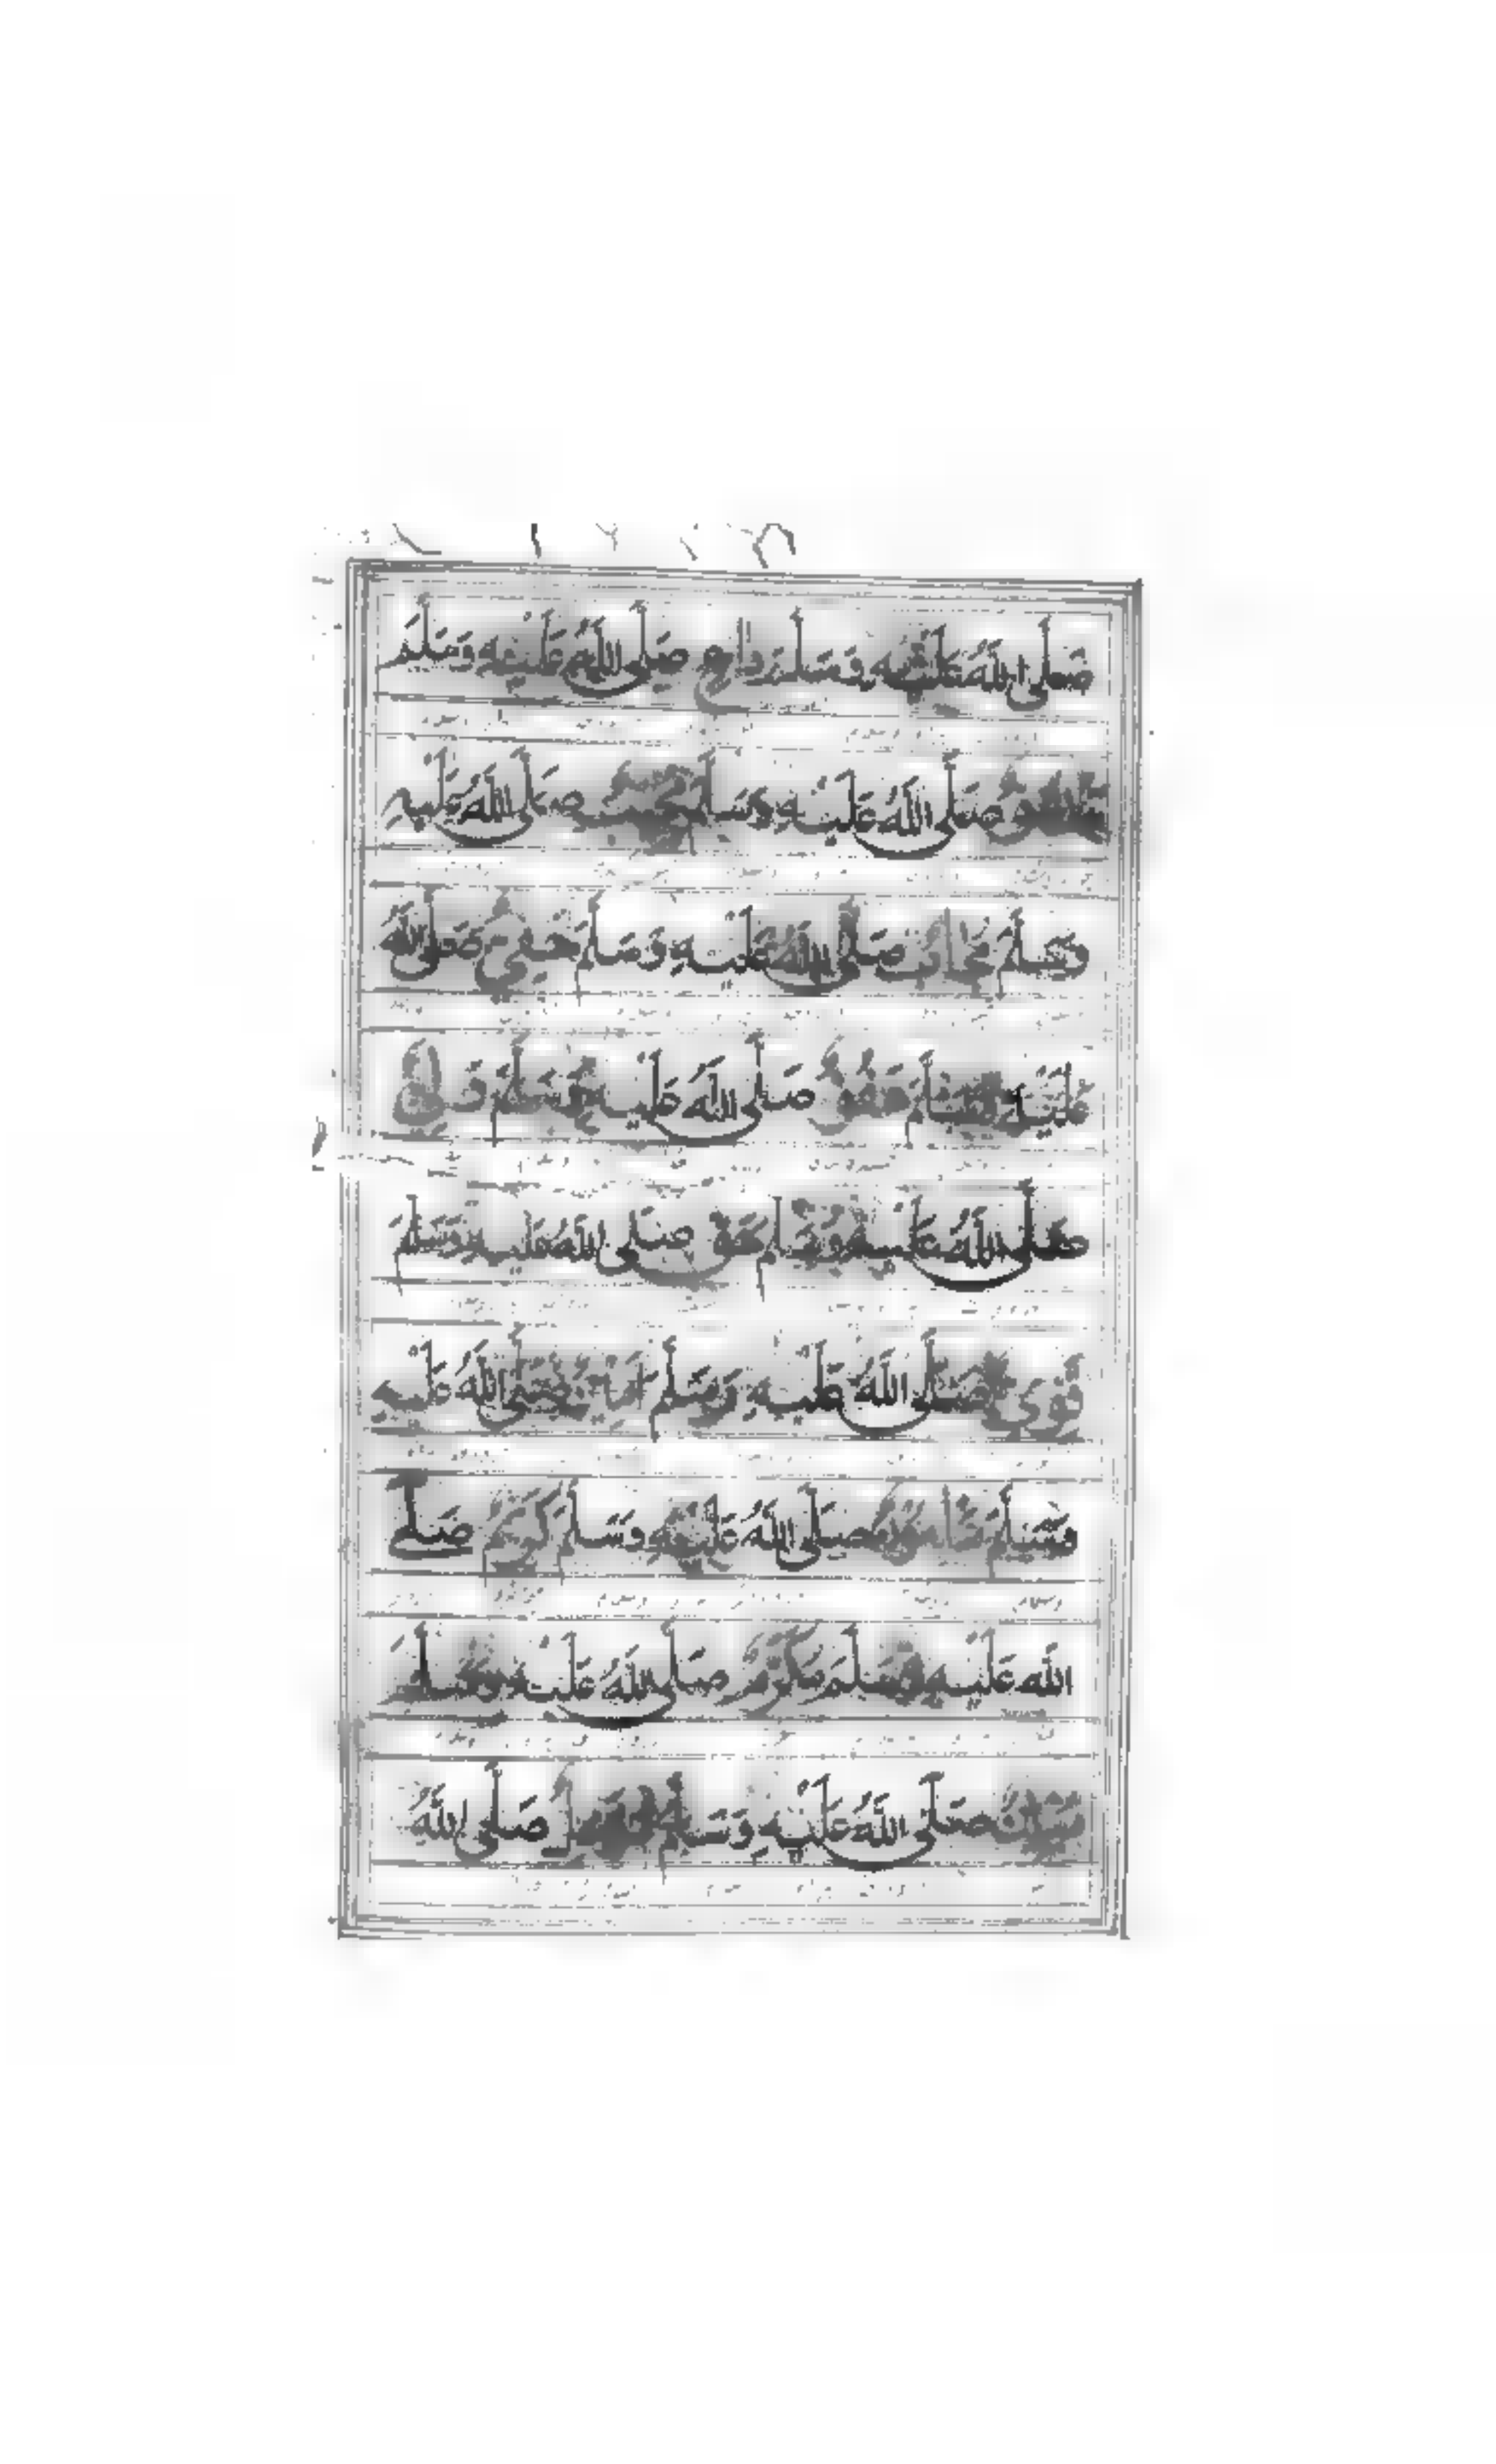 صَلَّى اللهُ عَلَيْهِ وَسَلَّمَ داعٍ صَلَّى اللهُ عَلَيْهِ وَسَلَّمَ
مَدْعُوٌّ صَلَّى اللهُ عَلَيْهِ وَسَلَّمَ مُجِيبٌ صَلَّى اللهُ عَلَيْهِ
وَسَلَّمَ مُجَابٌ صَلَّى اللهُ عَلَيْهِ وَسَلَّمَ حَفِيٌّ صَلَّى اللهُ
عَلَيْهِ وَسَلَّمَ عَفُوٌّ صَلَّى اللهُ عَلَيْهِ وَسَلَّمَ وَلِيٌّ
صَلَّى اللهُ عَلَيْهِ وَسَلَّمَ حَقٌّ صَلَّى اللهُ عَلَيْهِ وَسَلَّمَ
قَوِيٌّ صَلَّى اللهُ عَلَيْهِ وَسَلَّمَ اَمِينٌ صَلَّى اللهُ عَلَيْهِ
وَسَلَّمَ مَأْمُونٌ صَلَّى اللهُ عَلَيْهِ وَسَلَّمَ كَرِيمٌ صَلَّى
اللهُ عَلَيْهِ وَسَلَّمَ مُكَرَّمٌ صَلَّى اللهُ عَلَيْهِ وَسَلَّمَ
صَلَّى اللهُ عَلَيْهِ وَسَلَّمَ صَلَّى اللهُ